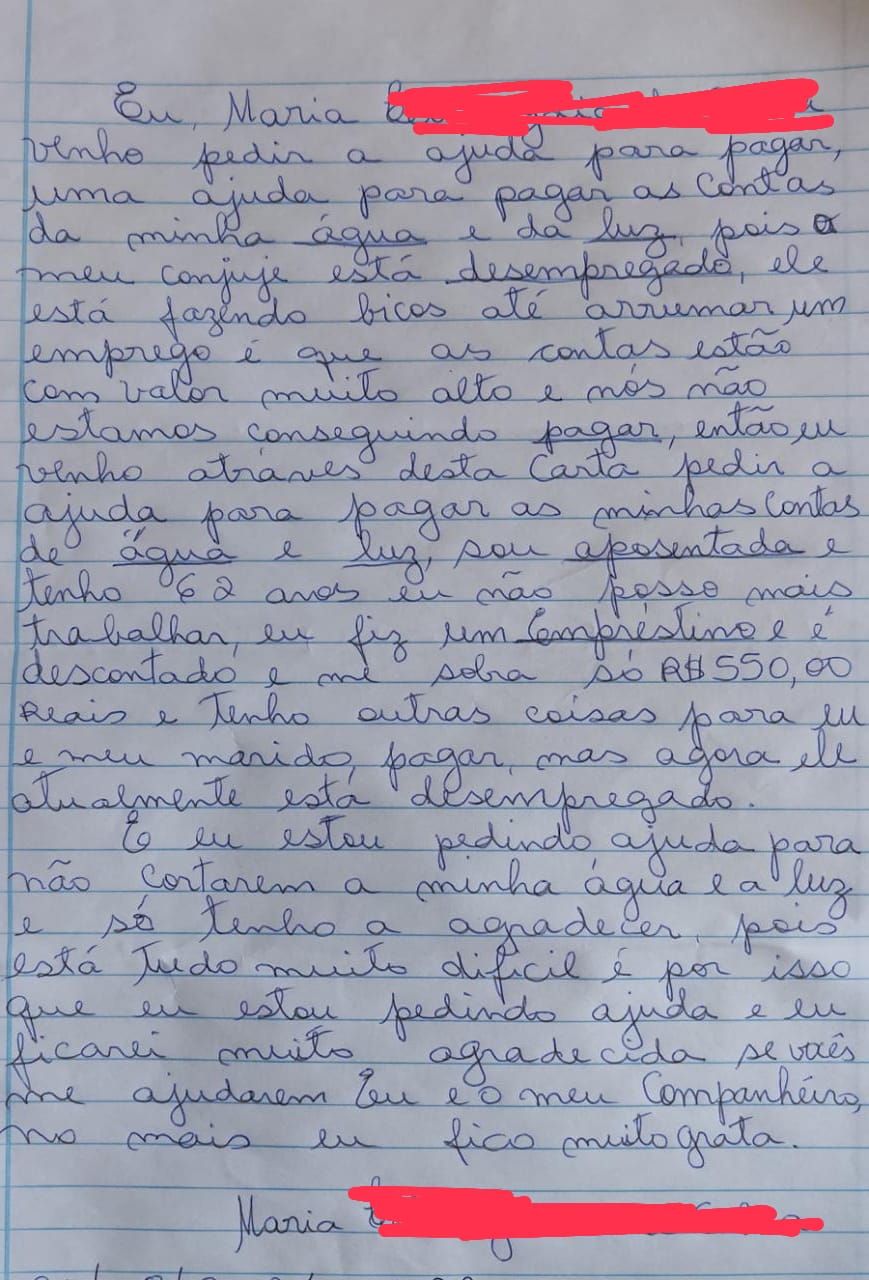 Eu, Maria
venho pedir a ajuda para pagar,
uma ajuda para pagar as contas
da minha água e da luz, pois o
meu conjuje está desempregado, ele
está fazendo bicos até arrumar um
emprego é que as contas estão
com valor muito alto e nós não
estamos conseguindo pagar, então eu
venho atráves desta Carta pedir a
ajuda para pagar as minhas contas
de água e luz, sou aposentada e
tenho 62 anos eu não posso mais
trabalhar, eu fiz um Empréstino e é
descontado e me sobra só R$ 550,00
Reais e tenho outras coisas para eu
e meu marido, pagar, mas agora ele
atualmente está desempregado.
E eu estou pedindo ajuda para
não cortarem a minha água e a luz
e só tenho a agradecer, pois
está tudo muito dificil é por isso
que eu estou pedindo ajuda e eu
ficarei muito agradecida se vocês
me ajudarem Eu e o meu Companheiro,
no mais eu fico muito grata.
Maria